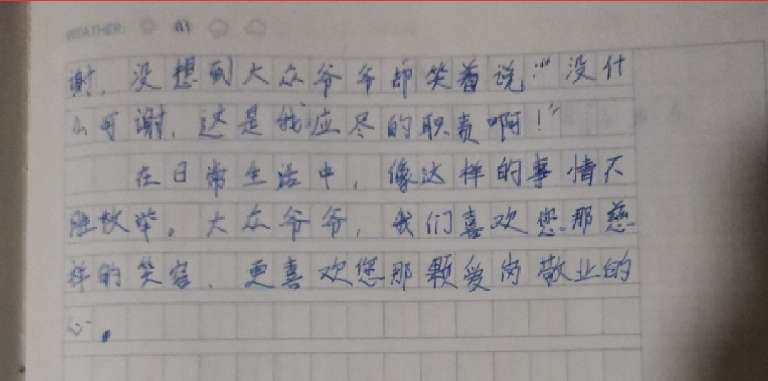 WEATHER:
谢,没想到大众爷爷却笑着说:“没什
么可谢,这是我应尽的职责啊!”
在日常生活中,像这样的事情不
胜枚举。大众爷爷,我们喜欢您那慈
祥的笑容,更喜欢您那颗爱岗敬业的
心。